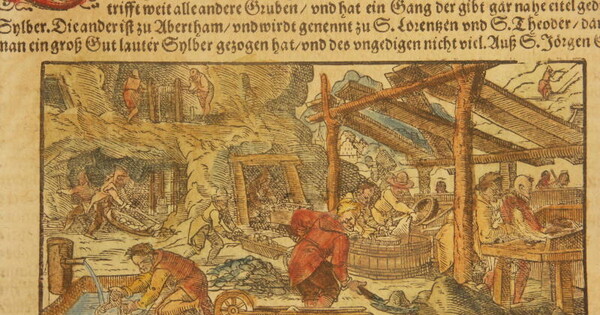 trifft weit alle andere Gruben / vnd hat ein Gang der gibt gar nahe eitel ged
Sylber. Die ander ist zu Abertham / vnd wirdt genennt zu S. Lorentzen vnd S. Theoder / da
man ein groß Gut lauter Sylber gezogen hat / vnd des vngedigen nicht viel. Auß S. Jörgen